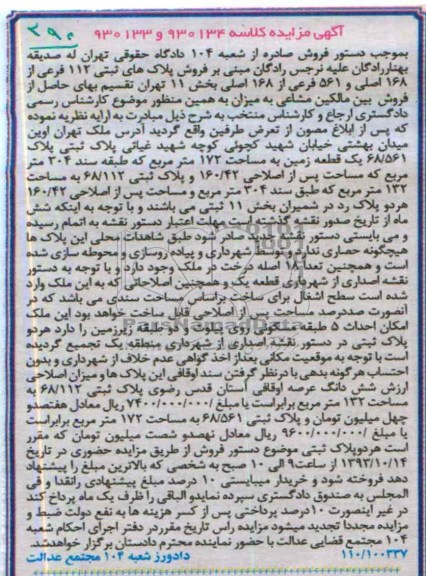 ۳۹۰
آگهی مزایده کلاسه ۹۳۰۱۳۴ و ۹۳۰۱۳۳
بموجب دستور فروش صادره از شعبه ۱۰۴ دادگاه حقوقی تهران له صدیقه
بهناررادگان علیه نرجس رادگان مبنی بر فروش پلاک های ثبتی ۱۱۲ فرعی از
۱۶۸ اصلی و ۵۶۱ فرعی از ۱۶۸ اصلی بخش ۱۱ تهران تقسیم بهای حاصل از
فروش بین مالکین مشاعی به میزان به همین منظور موضوع کارشناس رسمی
دادگستری ارجاع و کارشناس منتخب به شرح ذیل مبادرت به ارایه نظریه نموده
که پس از ابلاغ مصون از تعرض طرفین واقع گردید آدرس ملک تهران اوین
میدان بهشتی خیابان شهید کچوئی کوچه شهید غیاثی پلاک ثبتی پلاک
۶۸/۵۶۱ یک قطعه زمین به مساحت ۱۷۲ متر مربع که طبقه سند ۳۰۴ متر
مربع که مساحت پس از اصلاحی ۱۶۰/۴۲ و پلاک ثبتی ۶۸/۱۱۲ به مساحت
۱۳۲ متر مربع که طبق سند ۳۰۴ متر مربع و مساحت پس از اصلاحی ۱۶۰/۴۲
هردو پلاک رد در شمیران بخش ۱۱ ثبتی می باشند و با توجه به اینکه شش
ماه از تاریخ صدور نقشه گذشته است مهلت اعتبار دستور نقشه به اتمام رسیده
و می بایستی دستور نقشه جدید صادر شود طبق شاهدات محلی این پلاک ها
هیچگونه حصاری ندارد و توسط شهرداری و پیاده روسازی و محوطه سازی شده
است و همچنین تعداد ۸ اصله درخت در ملک وجود دارد و با توجه به دستور
نقشه اصداری از شهرداری قطعه یک و همچنین اصلاحاتی که به این ملک وارد
شده است سطح اشغال برای ساخت براساس مساحت سندی می باشد که در
آنصورت صددرصد مساحت پس از اصلاحی قابل ساخت خواهد بود این ملک
امکان احداث ۵ طبقه مسکونی روی پیلوت و چهار طبقه زیرزمین را دارد هردو
پلاک ثبتی در دستور نقشه اصداری از شهرداری منطقه یک تجمیع گردیده
است با توجه به موقعیت مکانی بعداز اخذ گواهی عدم خلاف از شهرداری و بدون
احتساب هرگونه بدهی با درنظر گرفتن سند اوقافی این پلاک ها و میزان اصلاحی
ارزش شش دانگ عرصه اوقافی آستان قدس رضوی پلاک ثبتی ۶۸/۱۱۲ به
مساحت ۱۳۲ متر مربع برابراست با مبلغ ۷۴۰۰/۰۰۰/۰۰۰ ریال معادل هفتصدو
چهل میلیون تومان و پلاک ثبتی ۶۸/۵۶۱ به مساحت ۱۷۲ متر مربع برابراست
با مبلغ ۹۶۰۰/۰۰۰/۰۰۰ ریال معادل نهصدو شصت میلیون تومان که مقرر
است هردوپلاک ثبتی موضوع دستور فروش از طریق مزایده حضوری در تاریخ
۱۳۹۳/۱۰/۱۴ از ساعت۹ الی ۱۰ صبح به شخصی که بالاترین مبلغ را پیشنهاد
دهد فروخته شود و خریدار میبایستی ۱۰ درصد مبلغ پیشنهادی رانقدا و فی
المجلس به صندوق دادگستری سپرده نمایدو الباقی را ظرف یک ماه پرداخ کند
در غیر اینصورت ۱۰درصد پرداختی پس از کسر هزینه ها به نفع دولت ضبط و
مزایده مجددا تجدید میشود مزایده راس تاریخ مقرردر دفتر اجرای احکام شعبه
۱۰۴ مجتمع قضایی عدالت با حضور نماینده محترم دادستان برگزار خواهدشد.
۱۱۰/۱۰۰۳۳۷ دادورز شعبه ۱۰۴ مجتمع عدالت